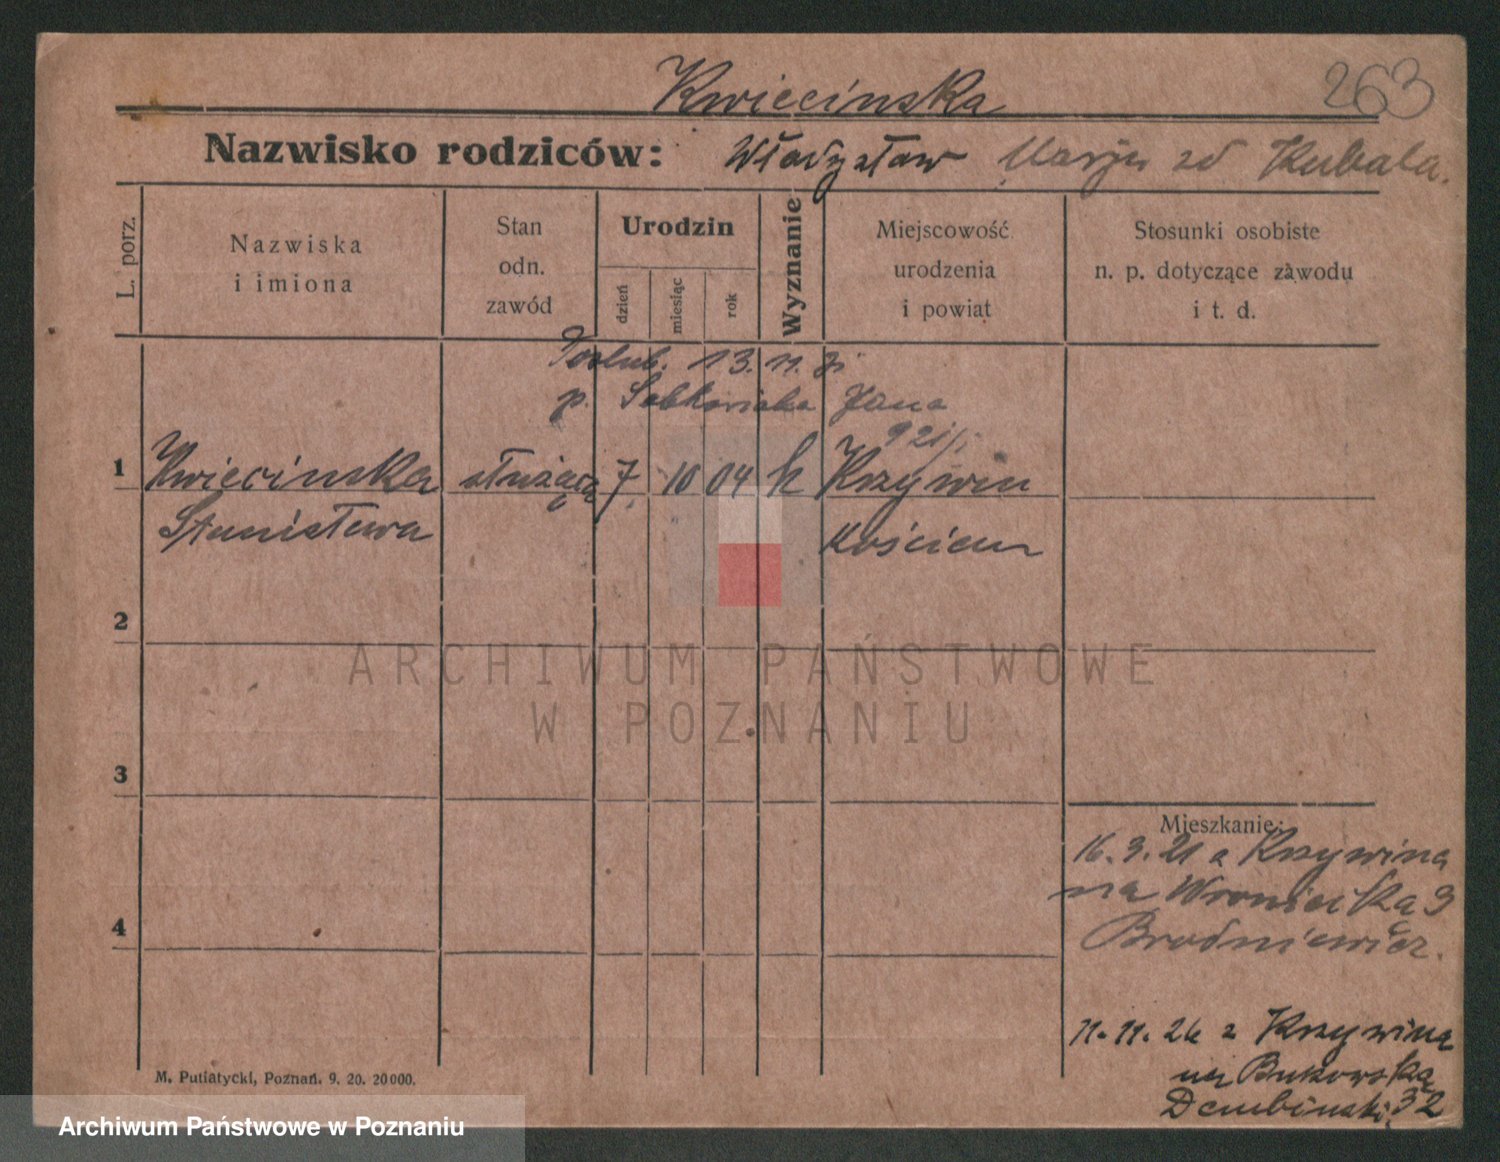 263
Kwiecinska
Nazwisko rodziców: Władysław Marja zd Kubala.
L. porz.
Nazwiska
i imiona
Stan
odn.
zawód
Urodzin
dzień
miesiąc
rok
Wyznanie
Miejscowość
urodzenia
i powiat
Stosunki osobiste
n. p. dotyczące zawodu
i t. d.
13. 11.
p. Sobkowiaka Jana
921/
1 Kwiecinska służącą 7. 10 04 k Krzywin
Stanisława Kościan
2
3
4
Mieszkanie:
16. 3. 21 z Krzywina
na Wroniecką 3
Brodniewicz.
11. 11. 26 z Krzywina
na Bukowską
Dembinski 32
M. Putiatycki, Poznań. 9. 20. 20000.
ARCHIWUM PAŃSTWOWE
W POZNANIU
Archiwum Państwowe w Poznaniu